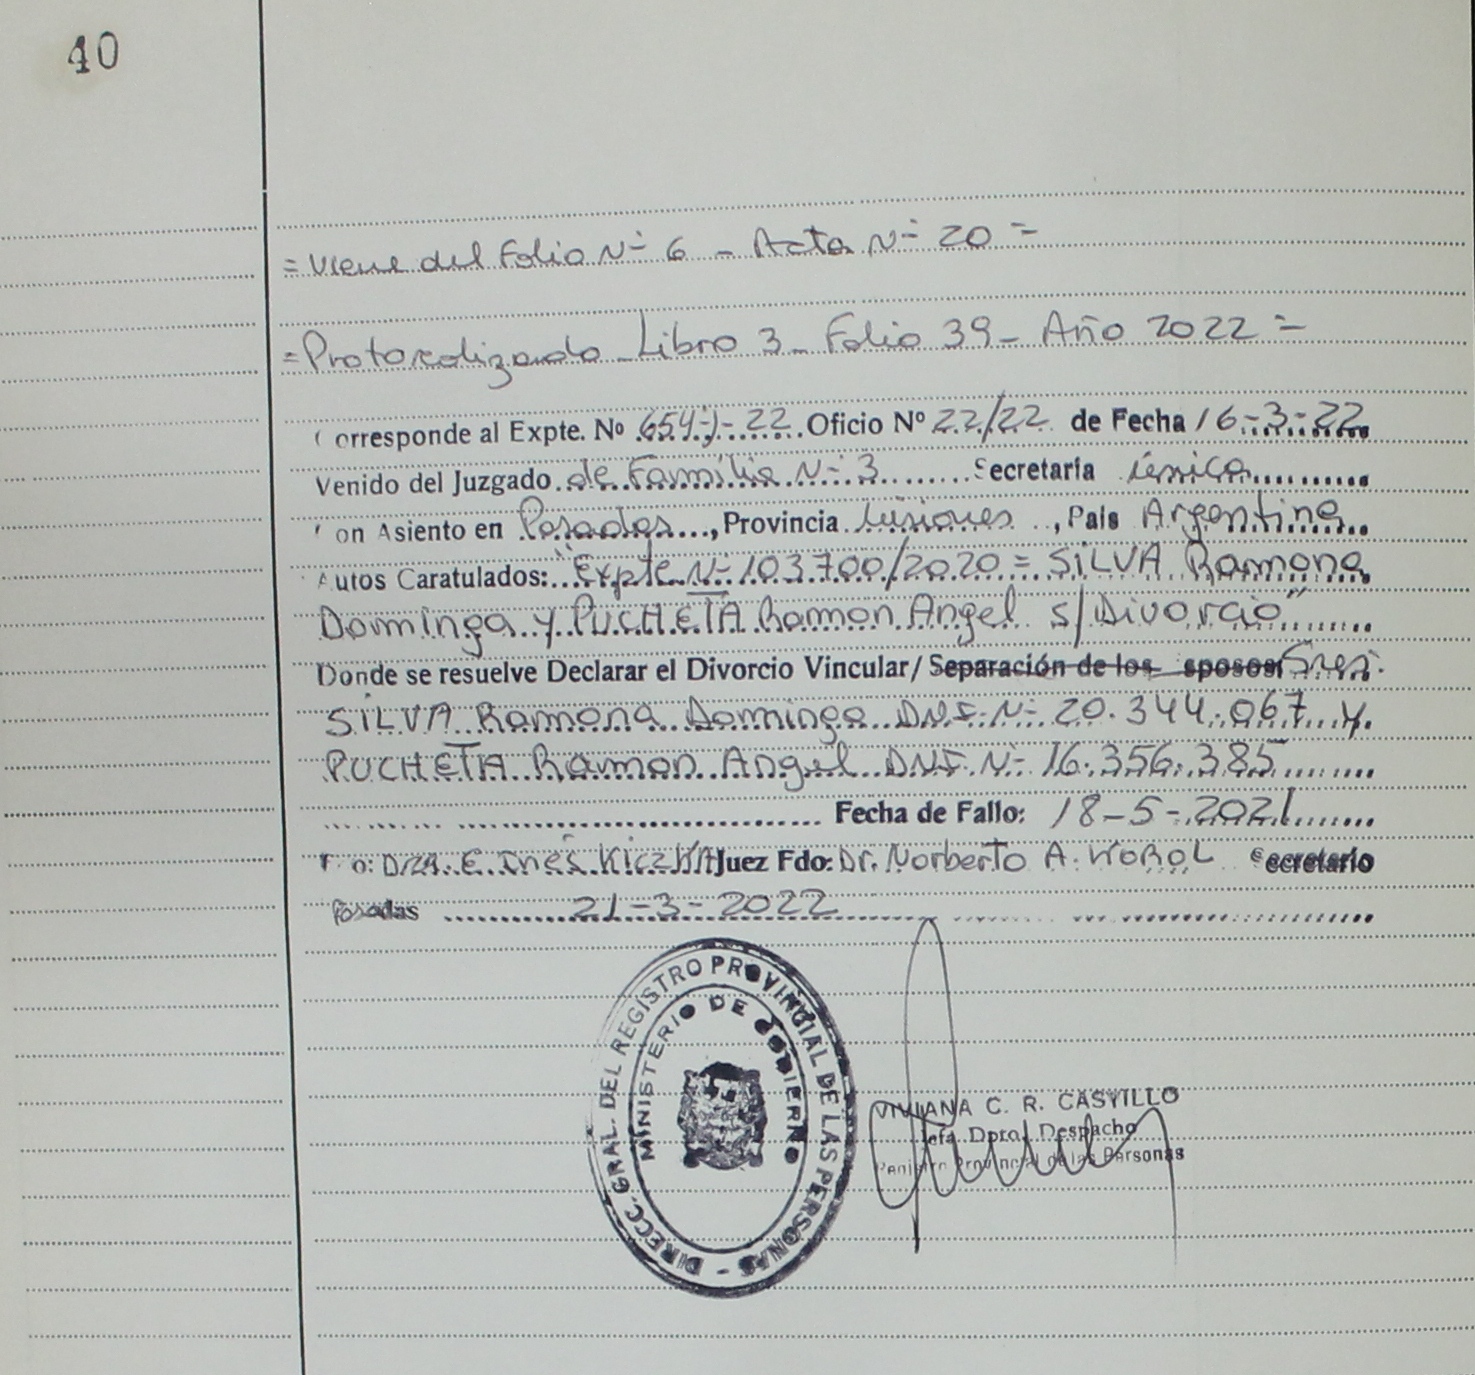 40
= Viene del Folio Nº 6 - Acta Nº 20 =
= Protocolizado Libro 3 - Folio 39 - Año 2022 =
Corresponde al Expte. Nº 654-J-22 Oficio Nº 22/22 de Fecha 16-3-22
Venido del Juzgado de Familia Nº 3 Secretaría única
Con Asiento en Posadas, Provincia Misiones, País Argentina
Autos Caratulados: "Expte Nº 103700/2020 = SILVA Ramona
Dominga y PUCHETA Ramon Angel s/Divorcio"
Donde se resuelve Declarar el Divorcio Vincular/ Separación de los esposos Sres.
SILVA Ramona Dominga DNI Nº 20.344.067 y
PUCHETA Ramon Angel DNI Nº 16.356.385
Fecha de Fallo: 18-5-2021
Fdo: Dra. E. Inés KiczKA Juez Fdo: Dr. Norberto A. KOROL Secretario
Posadas 21-3-2022
DIRECC. GRAL. DEL REGISTRO PROVINCIAL DE LAS PERSONAS -
MINISTERIO DE GOBIERNO
VIVIANA C. R. CASTILLO
Jefa Dpto. Despacho
Registro Provincial de las Personas